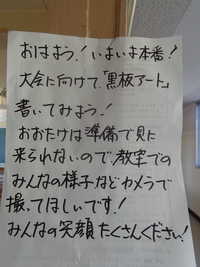 おはよう！いよいよ本番！
大会に向けて、「黒板アート」
書いてみよう！
おおたけは準備で見に
来られないので、教室での
みんなの様子などカメラで
撮ってほしいです！
みんなの笑顔たくさんください！